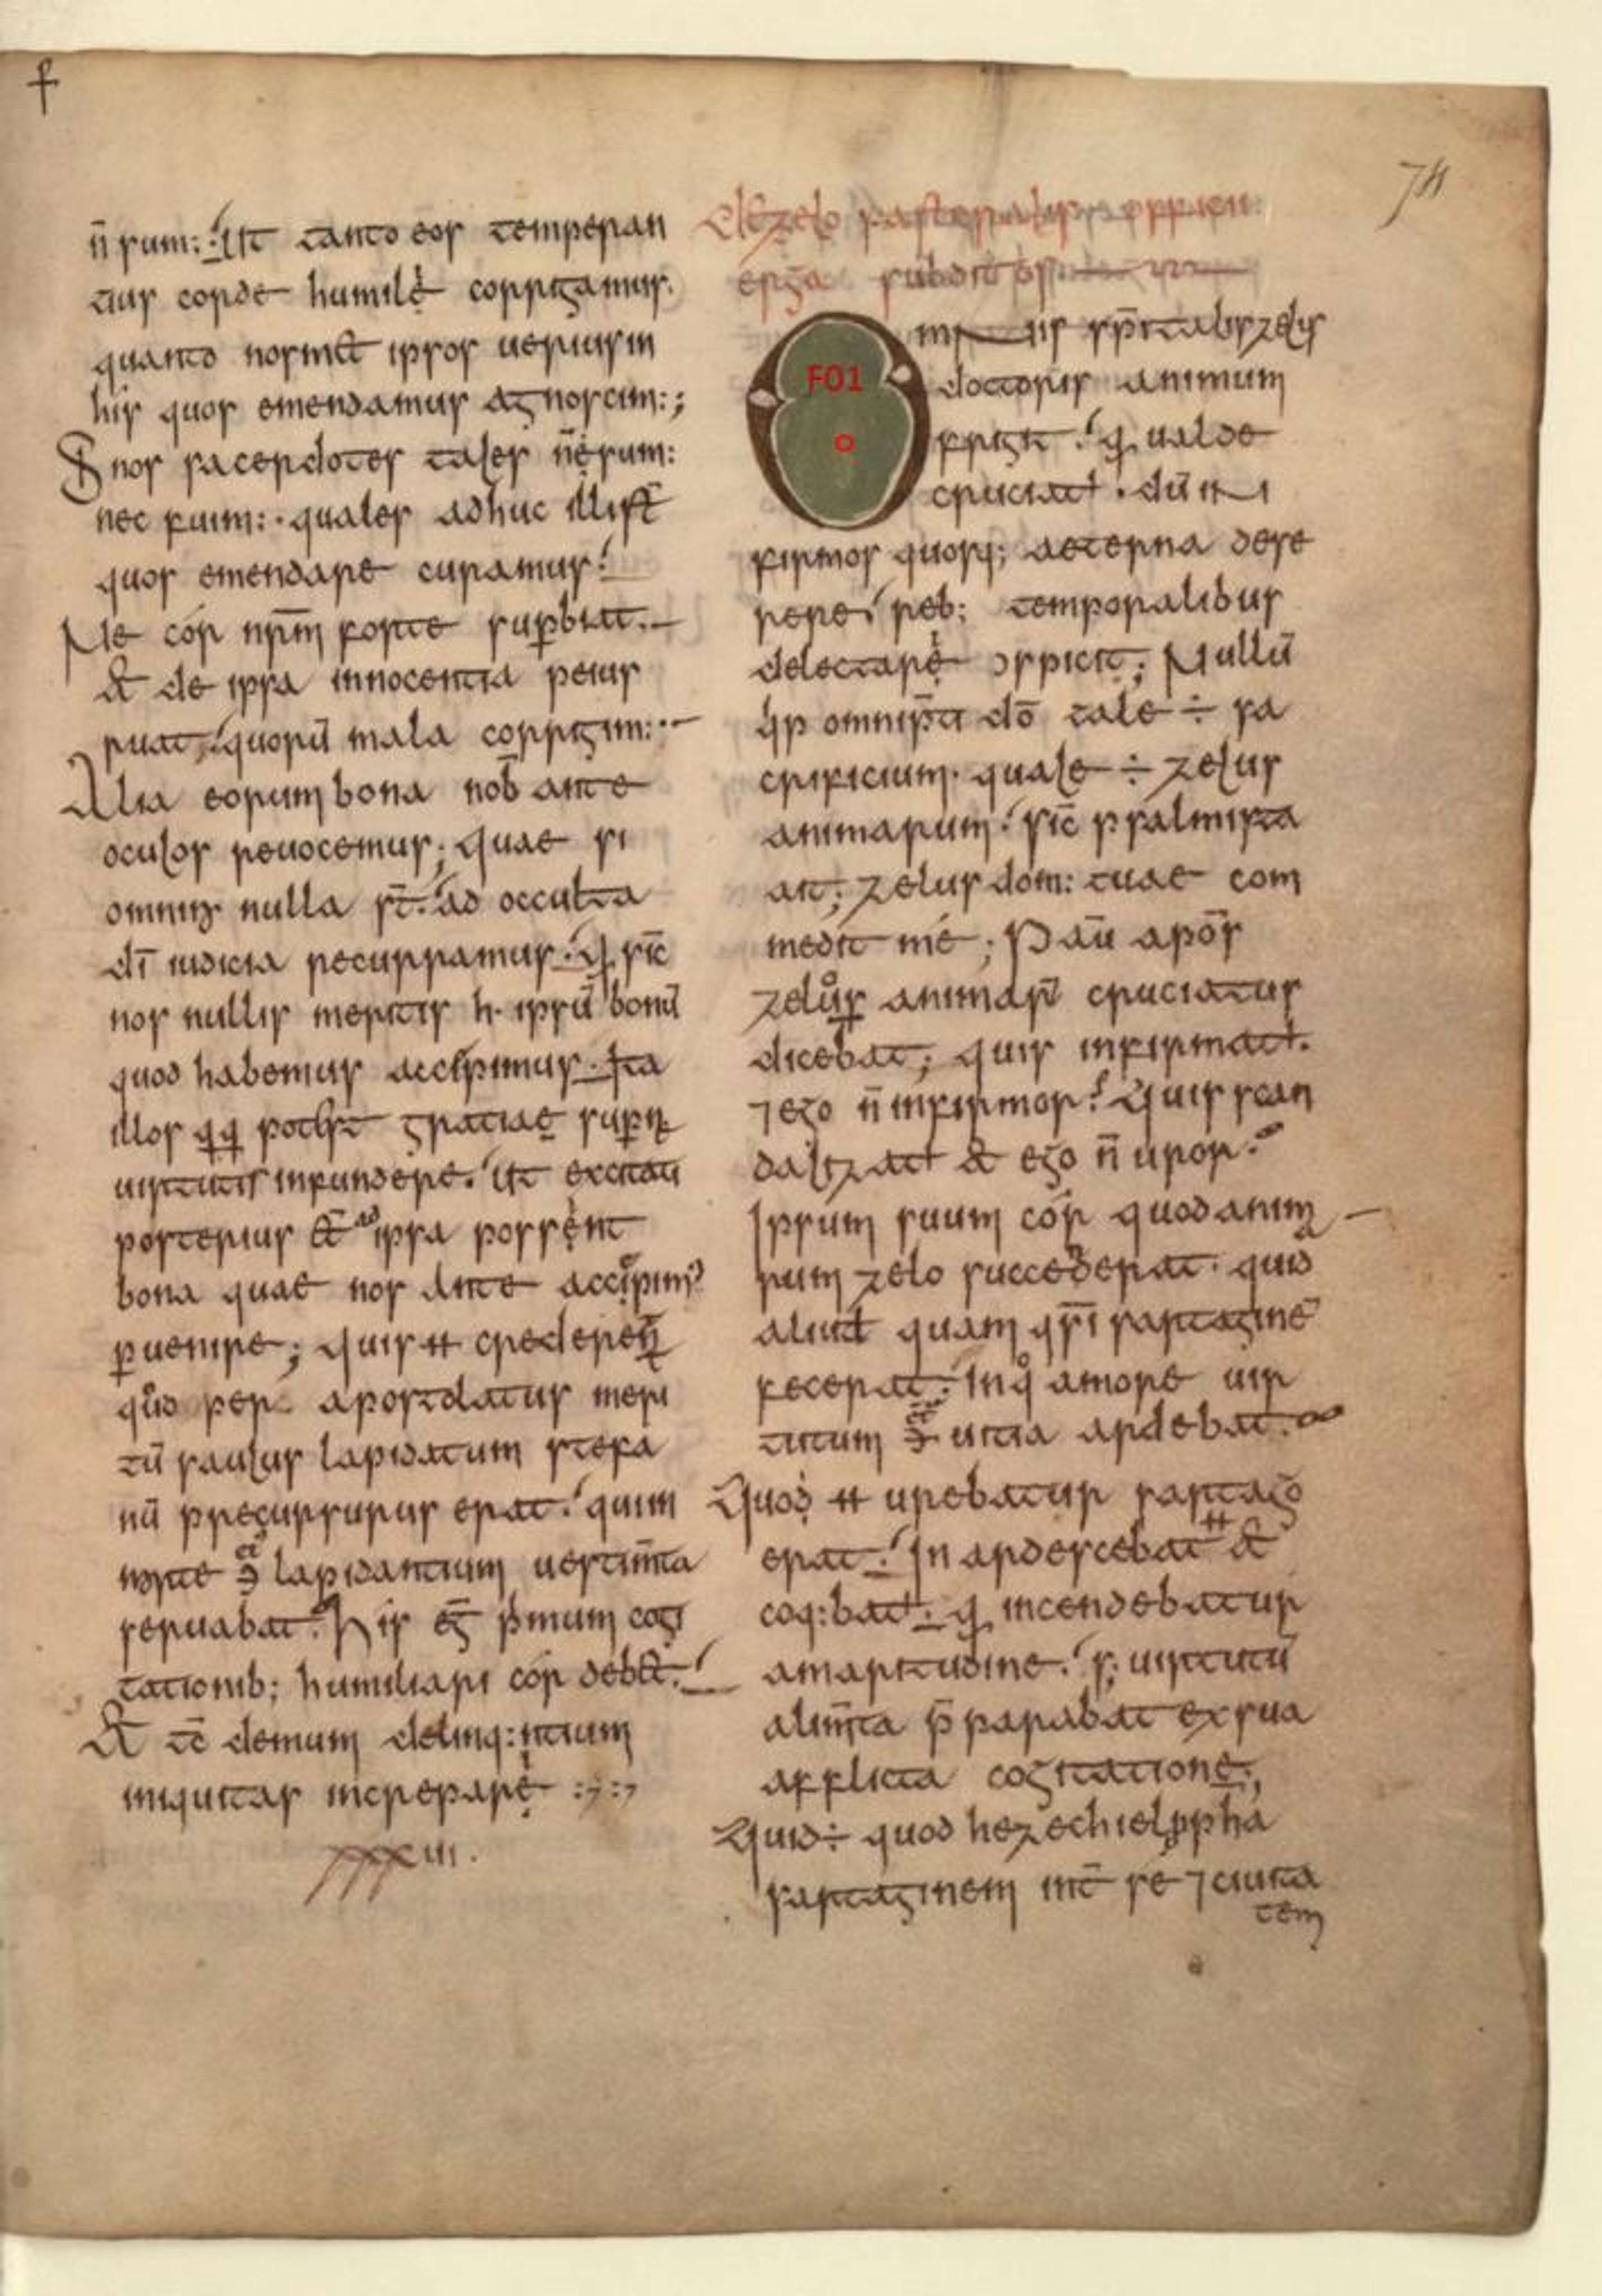 n̄ sum:· Ut tanto eos temperan
tius corde humilẹ̀ corrigamur.
quanto nosmet ipsos uerius in
his quos emendamus agnoscim:;
Si nos sacerdotes tales n̄ erum:
nec fuim:· quales adhuc illi st̄
quos emendare curamus·
Ne cór nr̄m forte superbiat.
& de ipsa innocentia peius
ruat, quorū mala corrigim:·
Alia eorum bona nob̄ ante
oculos reuocemus; quae si
omnino nulla st̄. ad occulta
dī iudicia recurramus. q; sic̄
nos nullis meritis h· ipsū bonū
quod habemus accipimus. Ita
illos qq potest gratiae supernę
uirtutis infundere. Ut excitati
posterius &̄ ad ipsa possẹnt
bona quae nos ante accipim'
peruenire; quis ++ crederet
quod per apostolatus meri
tū saulus lapidatum stefa
nū precursurus erat. qui in
morte ei' lapidantium uestim̄ta
seruabat. His eg̅ p̄mum cogi
tationib; humiliari cór deb&.
& tc̄ demum delinq:ntium
iniquitas increparẹ :,:,
xxxiii.
De zelo pastoralis officii
erga subditos
F01
o
Omnis sp̄italis zelus
doctoris animum
frigit. q; ualde
cruciat̄. dū in
firmos quosq; aeterna dese
rere. reb; temporalibus
delectarẹ̀ aspicit; Nullū
q̄p omnip̄ti dō tale ÷ sa
crificium. quale ÷ zelus
animarum. sic̄ psalmista
ait; zelus dom: tuae com
medit mé; Pau̅ apōs
zelůs animarū cruciatus
dicebat; quis infirmat̄.
⁊ ego n̄ infirmor? Quis scan
dalizat̄ & ego n̄ uror.
Ipsum suum cór quod anima
rum zelo succederat. quid
aliud quam q̄sī sartaginē
fecerat. In qͦ amore uir
tutum ɔ̄tra uitia ardebat.
Quod ++ urebatur sartago
erat. In ardescebat ++ &
coq:bat̄. q; incendebatur
amaritudine. s; uirtutū
alim̄ta p̄parabat ex sua
afflicta cogitatione;,
Quid ÷ quod hezechiel ppha
sartaginem int̄ se ⁊ ciuita
tem